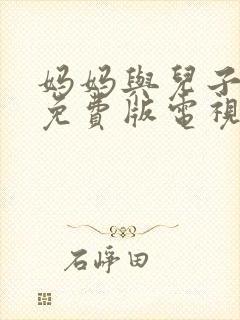 妈妈與兒子
免費版電視
石崢田